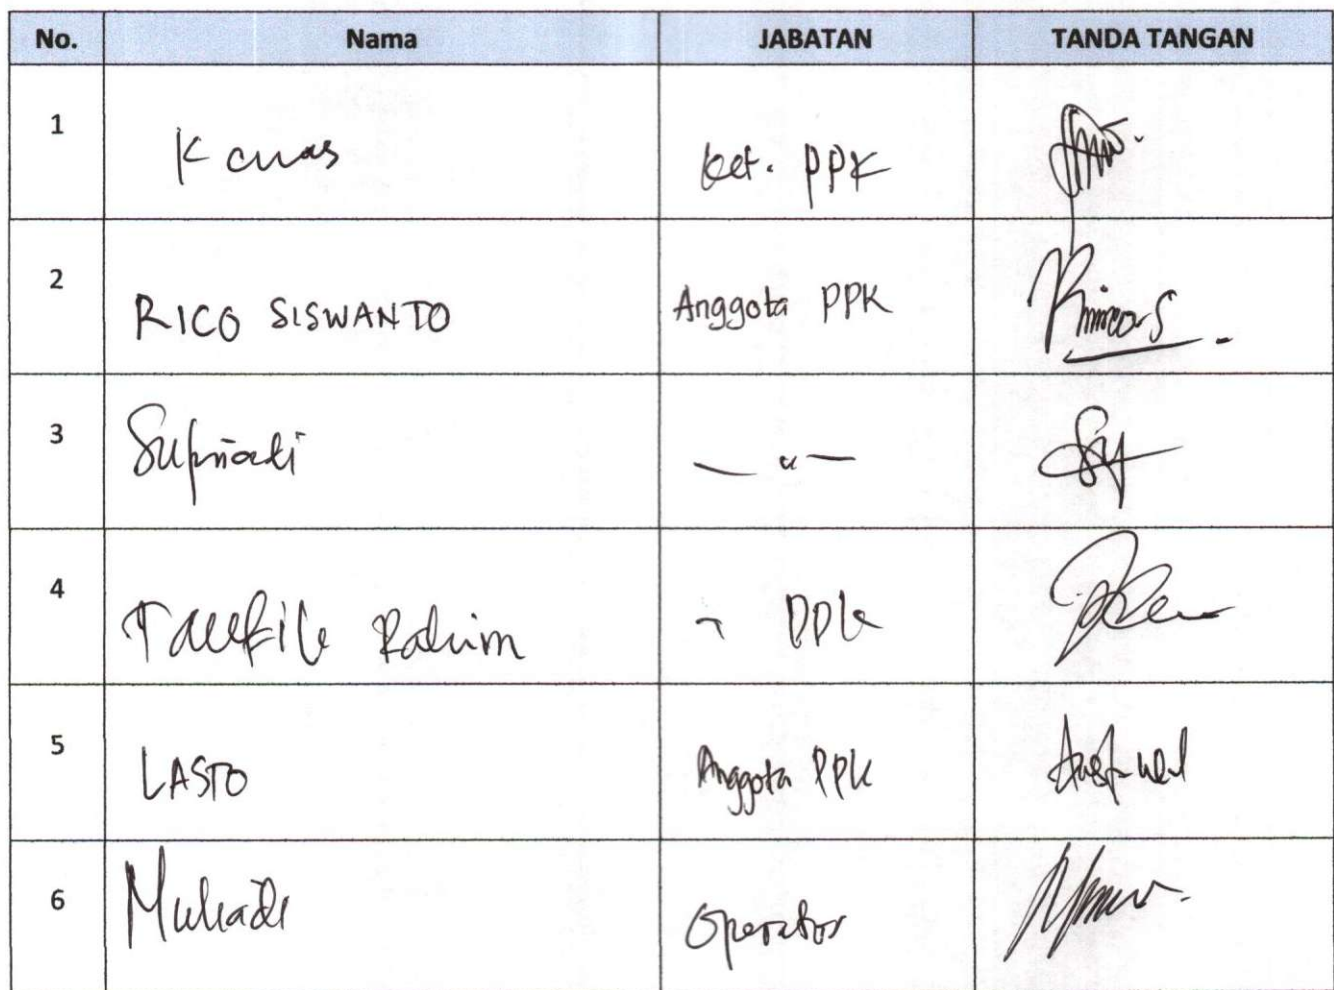 No. Nama JABATAN TANDA TANGAN
1 Ket. PPK
2 RICO SISWANTO Anggota PPK
3 Supriadi — " —
4 Taufik Rahim PPK
5 LASTO Anggota PPK
6 Muhadi Operator